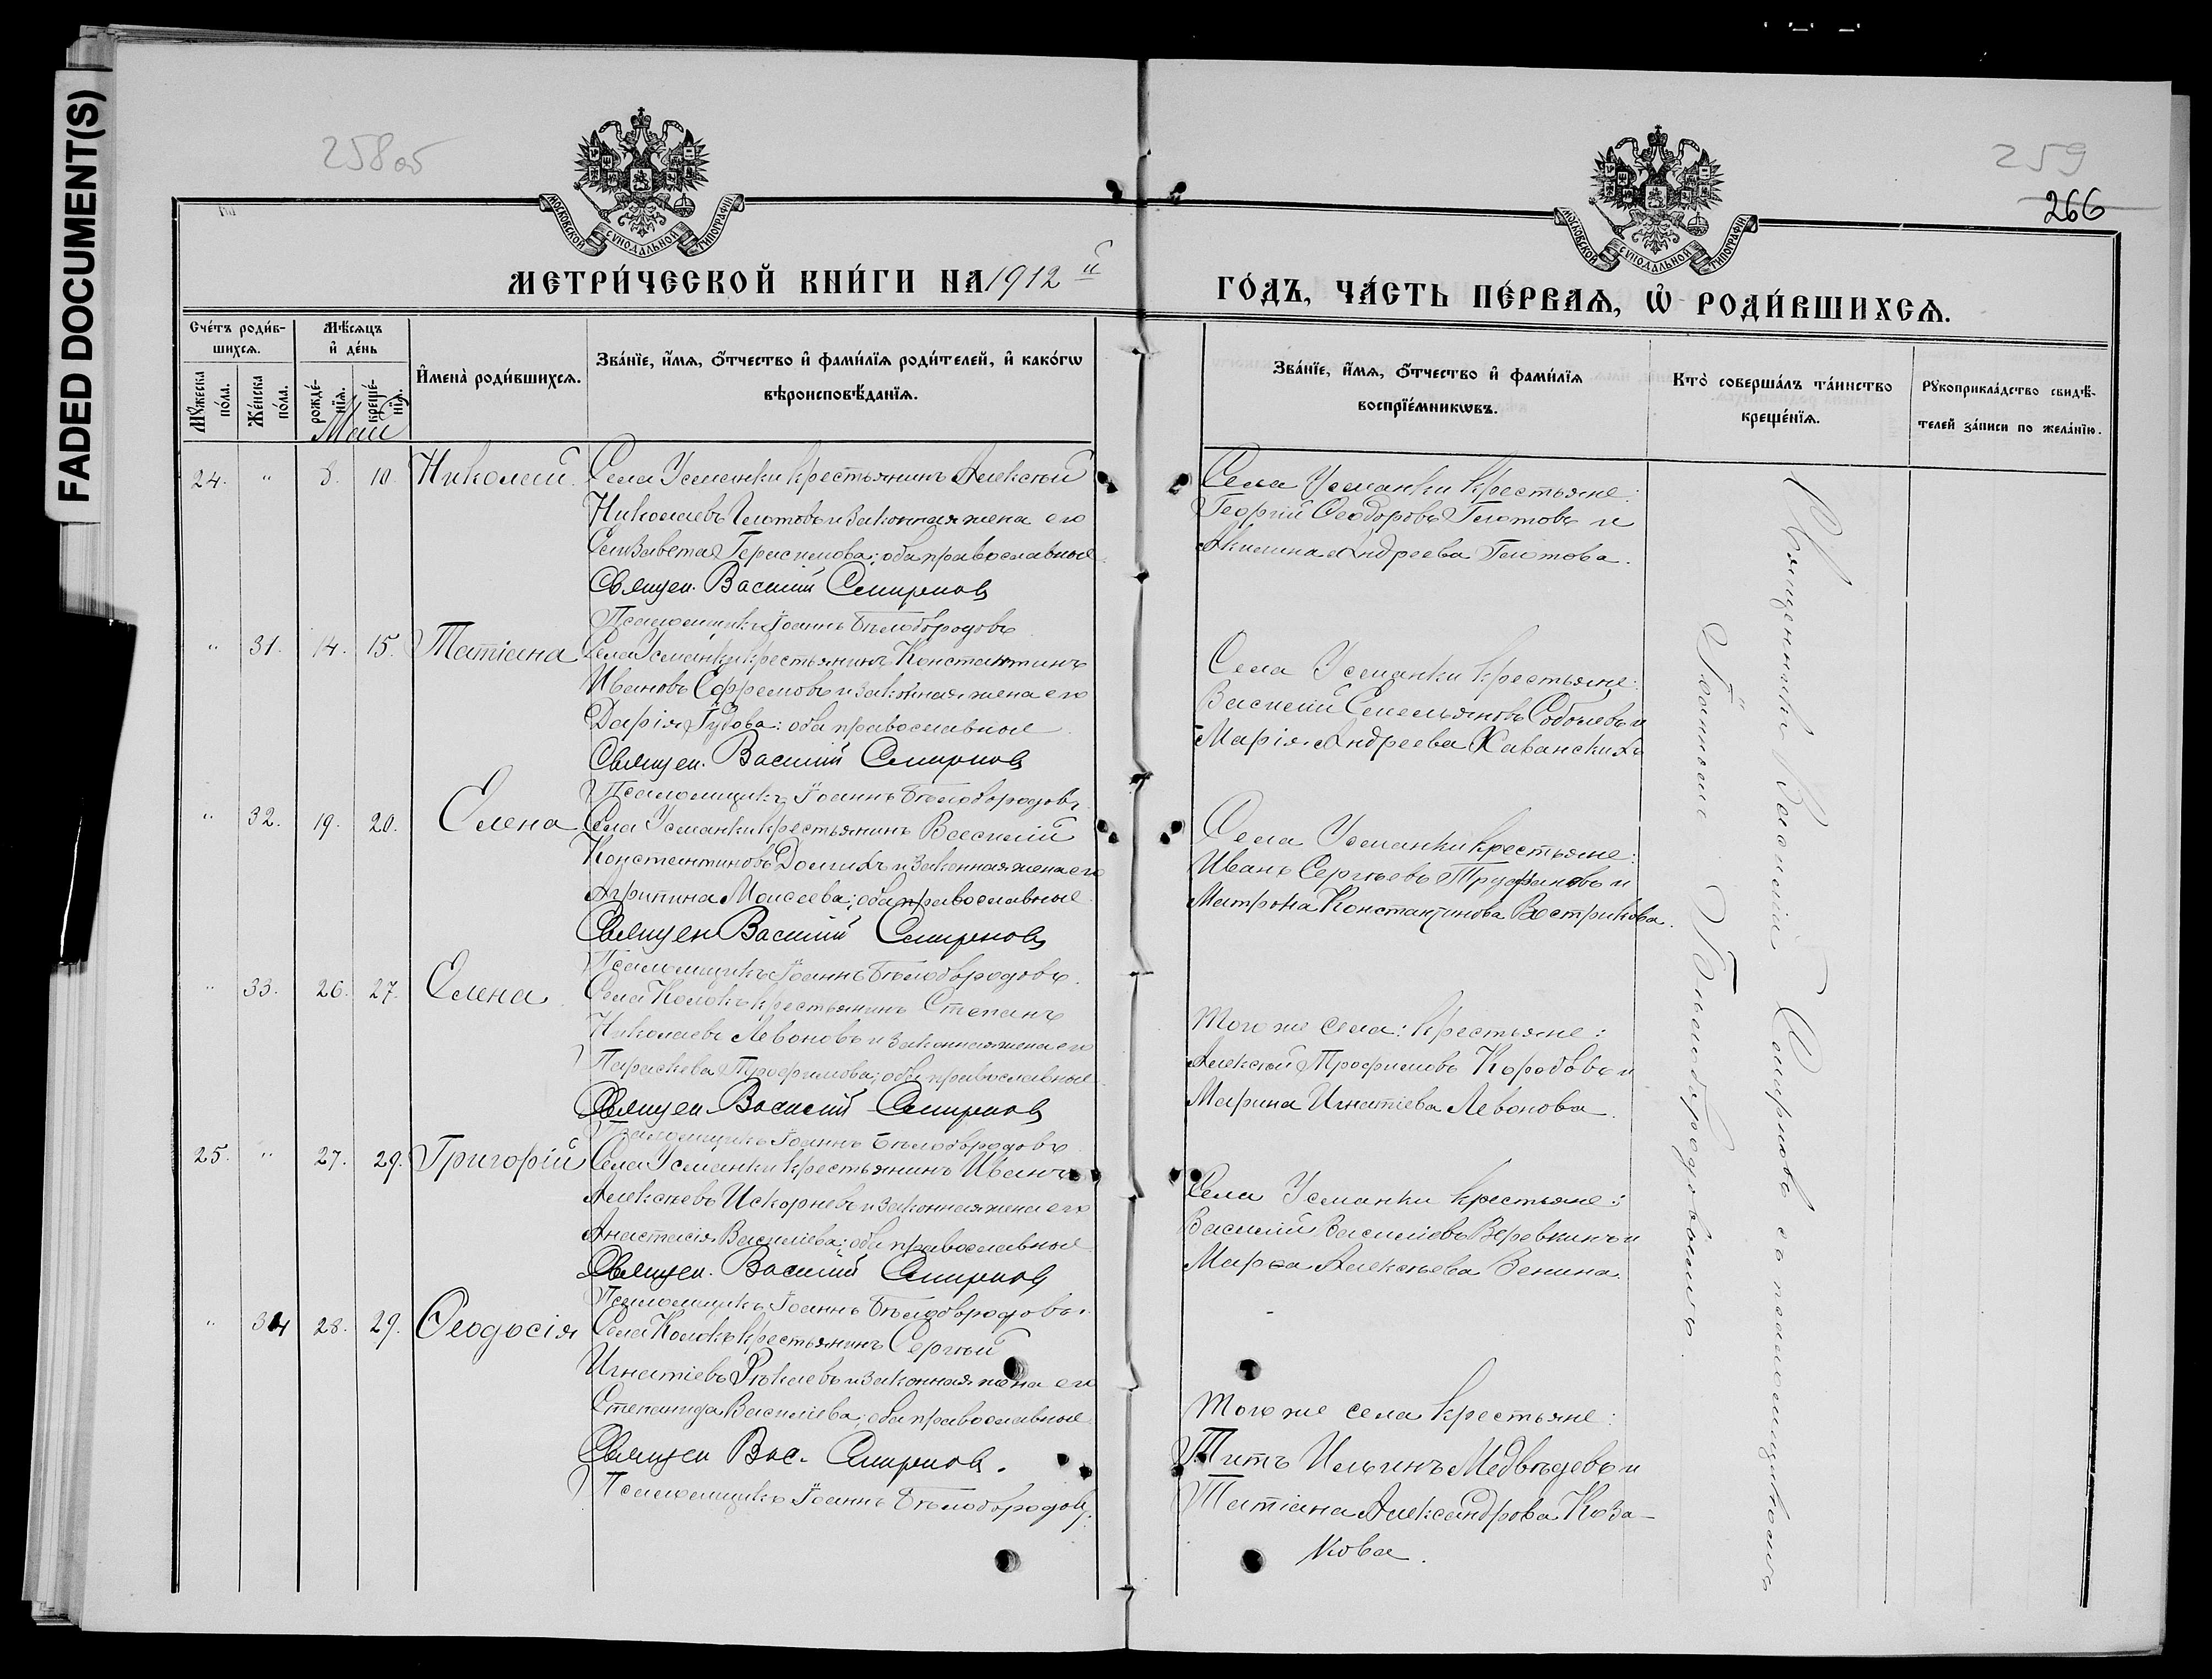 FADED DOCUMENT(S)
258об
259
266
МОСКОВСКОЙ СѴНОДАЛЬНОЙ ТИПОГРАФІИ
МОСКОВСКОЙ СѴНОДАЛЬНОЙ ТИПОГРАФІИ
МЕТРИ́ЧЕСКОЙ КНИ́ГИ НА 1912й
ГО́ДЪ, ЧА́СТЬ ПЕ́РВАѦ, Ѡ҆ РОДИ́ВШИХСѦ.
Сче́тъ роди́в-
шихсѧ.
Мѣ́сѧцъ
и҆ де́нь
Мꙋ́жеска
по́ла.
Же́нска
по́ла.
рожде́-
нїѧ.
креще́-
нїѧ.
Май
И҆мена̀ роди́вшихсѧ.
Зва́нїе, и҆́мѧ, ѻ҆́тчество и҆ фами́лїѧ роди́телей, и҆ како́гѡ
вѣроисповѣ́данїѧ.
Зва́нїе, и҆́мѧ, ѻ҆́тчество и҆ фами́лїѧ
воспрїе́мникѡвъ.
Кто̀ соверша́лъ та́инство
креще́нїѧ.
Рꙋкоприкла́дство свидѣ́-
телей за́писи по жела́нїю.
24. " 8. 10. Николай. Села Усманки крестьянинъ Алексѣй
Николаевъ Глотовъ и законная жена его
Елизавета Герасимова; оба православные
Священ. Василий Смирнов
Псаломщикъ Іоаннъ Бѣлобородовъ
Села Усманки крестьяне:
Георгій Ѳеодоровъ Глотовъ и
Акилина Андреева Глотова.
" 31. 14. 15. Татіана Села Усманки крестьянинъ Константинъ
Ивановъ Ефремовъ и законная жена его
Дарія Гудова: оба православные
Священ. Василий Смирнов
Псаломщикъ Іоаннъ Бѣлобородовъ
Села Усманки крестьяне:
Василій Емельяновъ Соболевъ и
Марія Андреева Хаванскихъ
" 32. 19. 20. Елена Села Усманки крестьянинъ Василій
Константиновъ Долгихъ и законная жена его
Агрипина Моисеева; оба православные
Священ Василий Смирнов
Псаломщикъ Іоаннъ Бѣлобородовъ.
Села Усманки крестьяне:
Иванъ Сергѣевъ Труфановъ и
Матрона Константинова Вострикова.
" 33. 26. 27. Елена. Села Колокъ крестьянинъ Степанъ
Николаевъ Левоновъ и законная жена его
Параскева Трофимова; оба православные
Священ. Василий Смирнов
Псаломщикъ Іоаннъ Бѣлобородовъ
Того же села: крестьяне:
Алексѣй Трофимовъ Коробовъ и
Марина Игнатіева Левонова.
25. " 27. 29. Григорій Села Усманки крестьянинъ Иванъ
Алексѣевъ Искорневъ и законная жена его
Анастасія Василіева; оба православные
Священ. Василий Смирнов
Псаломщикъ Іоаннъ Бѣлобородовъ.
Села Усманки крестьяне:
Василій Василіевъ Веревкинъ и
Марѳа Алексѣева Зенина.
" 34 28. 29. Ѳеодосія Села Колокъ крестьянинъ Сергѣй
Игнатіевъ и законная жена его
Степанида Василіева; оба православные
Священ Вас. Смирнов.
Псаломщикъ Іоаннъ Бѣлобородовъ.
Того же села крестьяне:
Титъ Ильинъ Медвѣдевъ и
Татіана Александрова Коза-
кова.
Священникъ Василій Смирновъ съ псаломщикомъ
Іоанномъ Бѣлобородовымъ.